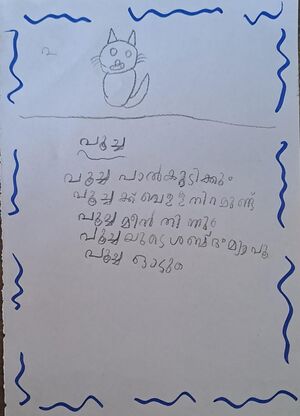 പൂച്ച
പൂച്ച പാൽകുടിക്കും
പൂച്ചക്ക് വെള്ളനിറമുണ്ട്
പൂച്ച മീൻ തിന്നും
പൂച്ചയുടെ ശബ്ദം മ്യാവൂ
പൂച്ച ഓടും